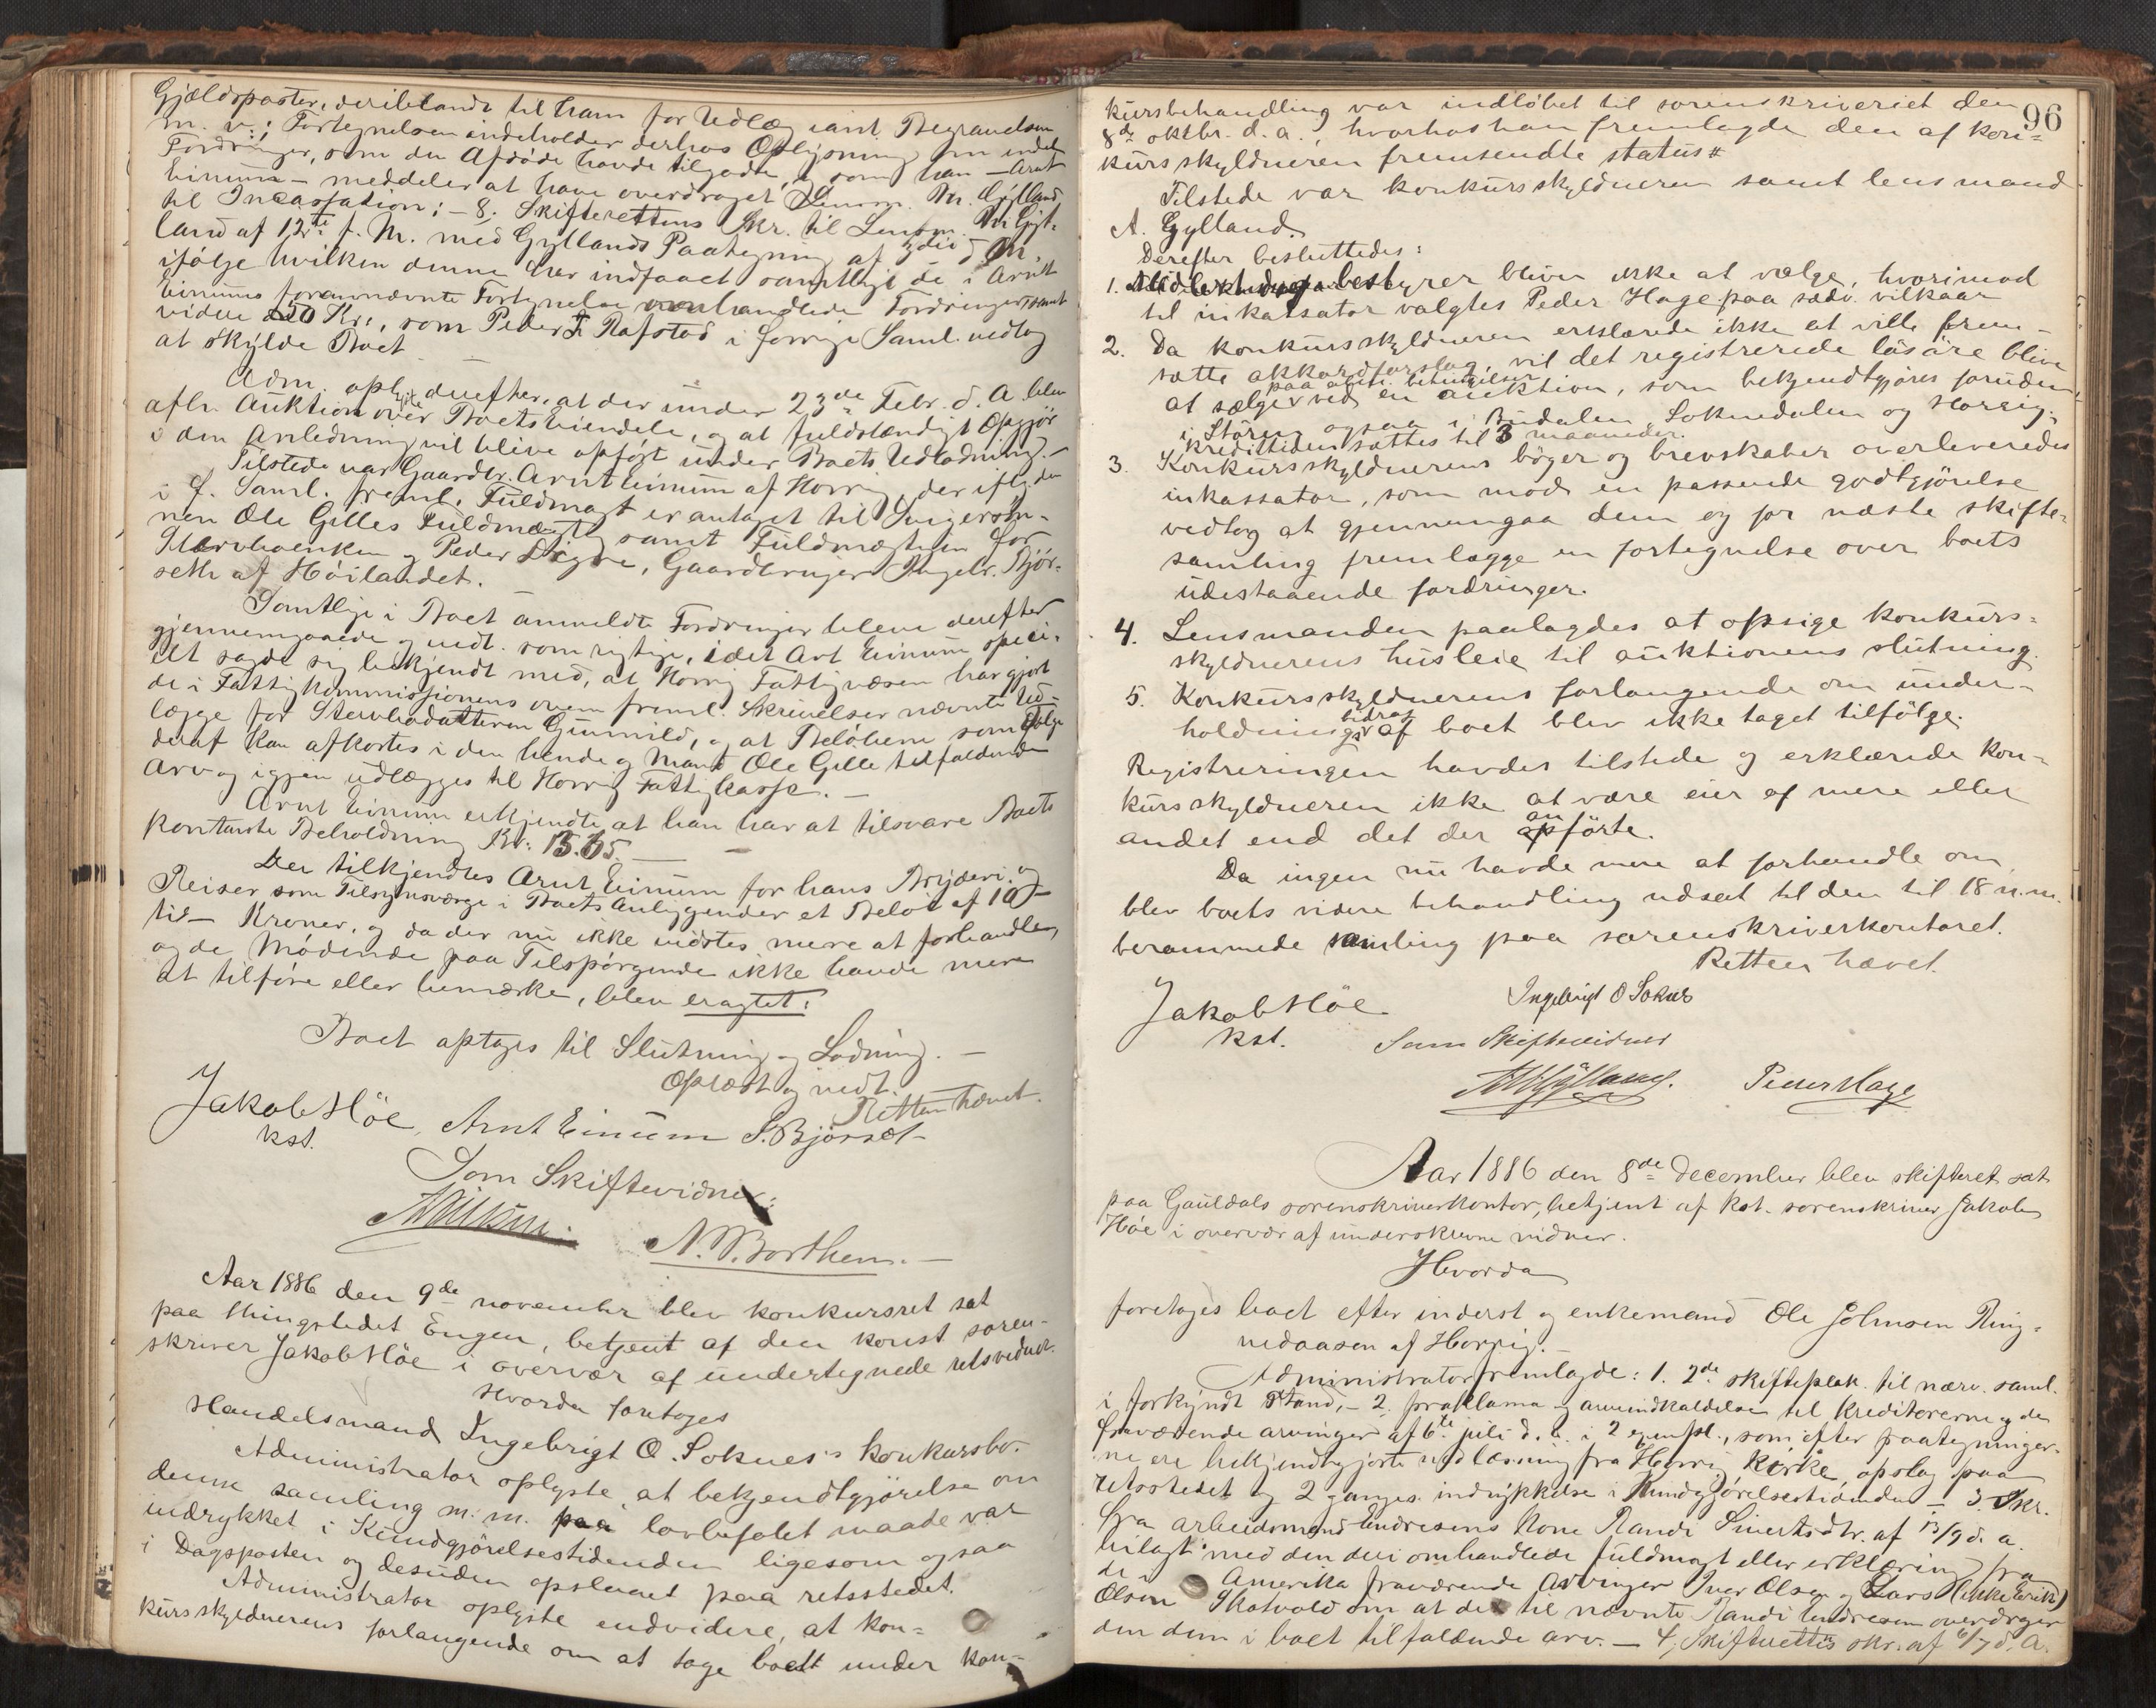 Gjældsposter, deriblandt til ham for Udlæg samt Begravelsen
m. v.; Fortegnelsen indeholder derhos Oplysning om endel
Fordringer, som den Afdøde havde tilgode, og som han – Arnt
Einum – meddeler at have overdraget Lensm. M. Gylland
til Incassation; – 8. Skifterettens Skr. til Lensm. M. Gyl-
land af 12te f. M. med Gyllands Paategning af 3die d. M.
ifølge hvilken denne har indfaaet samtlige de i Arnt
Einums forannævnte Fortegnelse omhandlede Fordringer samt
videre 50 Kr., som Peder Rafstad i forrige Saml. vedtog
at skylde Boet
Adm. oplyste derefter, at der under 23de Febr. d. A. blev
afh. Auktion over Boets Eiendele, og at fuldstændigt Opgjør
i den Anledning vil blive opført under Boets Udlodning. –
Tilstede var Gaardbr. Arnt Einum af Horrig, der iflg. den
i f. Saml. freml. Fuldmagt er antaget til Svigersøn-
nen Ole Gilles Fuldmægtig samt Fuldmægtigen for
Stervboenken og Peder Digre, Gaardbruger Ingebr. Bjør-
seth af Høilandet.
Samtlige i Boet anmeldte Fordringer bleve derefter
gjennemgaaede og vedt. som rigtige, idet Arnt Einum speci-
elt sagde sig bekjendt med, at Horrig Fattigvæsen har gjort
de i Fattigkommissionens oven freml. Skrivelser nævnte Ud-
lægge for Stervbodatteren Gunnild, og at Beløbene som Følge
deraf kan afkortes i den hende og Mand Ole Gille tilfaldende
Arv og igjen udlægges til Horrig Fattigkasse. –
Arnt Einum erkjendte at han har at tilsvare Boets
kontante Beholdning Kr:
Der tilkjendtes Arnt Einum for hans Bryderi og
Reiser som Tilsynsværge i Boets Anliggender et Beløb af 10 –
ti – Kroner, og da der nu ikke vidstes mere at forhandle,
og de Mødende paa Tilspørgende ikke havde mere
at tilføre eller bemærke, blev eragtet:
Boet optages til Slutning og Lodning. –
Oplæst og vedt.
Retten hævet.
Jakob Höe, Arnt Einum I. Bjørset
kst.
Som Skiftevidner:
N. P. Borthem. –
Aar 1886 den 9de november blev konkursret sat
paa thingstedet Engen, betjent af den konst soren-
skriver Jakob Höe i overvær af undertegnede retsvidner.
Hvorda foretoges
Handelsmand Ingebrigt O. Soknes's konkursbo.
Administrator oplyste at bekjendtgjørelse om
denne samling m. m. paa lovbefalet maade var
indrykket i Kundgjørelsestidenden ligesom ogsaa
i Dagsposten og desuden opslaaet paa retsstedet.
Administrator oplyste endvidere, at kon-
kursskyldnerens forlangende om at tage boet under kon-
96
kursbehandling var indløbet til sorenskriveriet den
8de oktbr. d. a., hvorhos han fremlagde den af kon-
kursskyldneren fremsendte status
Tilstede var konkursskyldneren samt lensmand
A. Gylland.
Derefter besluttedes:
1. bestyrer bliver ikke at vælge, hvorimod
til inkassator valgtes Peder Hage paa sædv. vilkaar
2. Da konkursskyldneren erklærede ikke at ville frem-
sætte akkordforslag, vil det registrerede løsøre blive
paa alm. betingelser
at sælge ved en auktion, som bekjendtgjøres foruden
i Støren ogsaa i Budalen, Soknedalen og Horrig.
Kredittiden sættes til 3 maaneder.
3. Konkursskyldnerens bøger og brevskaber overleveredes
inkassator, som mod en passende godtgjørelse
vedtog at gjennemgaa dem og for næste skifte-
samling fremlægge en fortegnelse over boets
udestaaende fordringer.
4. Lensmanden paalagdes at opsige konkurs-
skyldnerens husleie til auktionens slutning.
5. Konkursskyldnerens forlangende om under-
bidrag
holdnings af boet blev ikke taget tilfølge.
Registreringen havdes tilstede og erklærede kon-
kursskyldneren ikke at være eier af mere eller
an
andet end det der opførte.
Da ingen nu havde mere at forhandle om
blev boets videre behandling udsat til den til 18 n. m.
berammede samling paa sorenskriverkontoret.
Retten hævet.
Jakob Höe Ingebrigt O Soknes
kst. Som Skiftevidner
Gylland. Peder Hage
Aar 1886 den 8de December blev skifteret sat
paa Gauldals sorenskriverkontor, betjent af kst. sorenskriver Jakob
Höe i overvær af underskrevne vidner.
Hvorda
foretoges boet efter inderst og enkemand Ole Johnsen Ring-
nedaasen af Horrig. –
Administrator fremlagde: 1. 2de skifteplak. til nærv. saml.
i forkyndt Stand, – 2. proklama og arveindkaldelse til kreditorerne og de
fraværende arvinger af 6te juli d. a. i 2 exempl., som efter paategninger-
ne ere bekjendtgjorte ved læsning fra Horrig Kirke, opslag paa
retsstedet og 2 ganges indrykkelse i Kundgjørelsestidenden – 3. Skr.
fra arbeidsmand Endresens Kone Randi Sivertsdtr. af 13/9 d. a.
bilagt med den deri omhandlede fuldmagt eller erklæring fra
de i Amerika fraværende Arvinger Iver Olsen og Lars (ikke Erik)
Olsen Skatvold om at de til nævnte Randi Endresen overdrager
den dem i boet tilfaldende arv. – 4, Skifterettens skr. af 6/7 d. A.